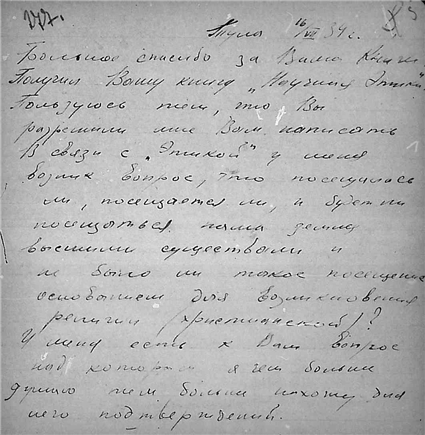 Тула 16/VII 34 г.
Большое спасибо за Ваши книги
Получил Вашу книгу „Научная Этика"
Пользуюсь тем, что Вы
разрешили мне Вам написать
В связи с „Этикой" у меня
возник вопрос, что посещалась
ли, посещается ли, и будет ли
посещаться наша земля
высшими существами и
не было ли такое посещение
основанием для возникновения
религии христианской?
У меня есть к Вам вопрос
над которым я чем больше
думаю тем больше нахожу для
него подтверждений.